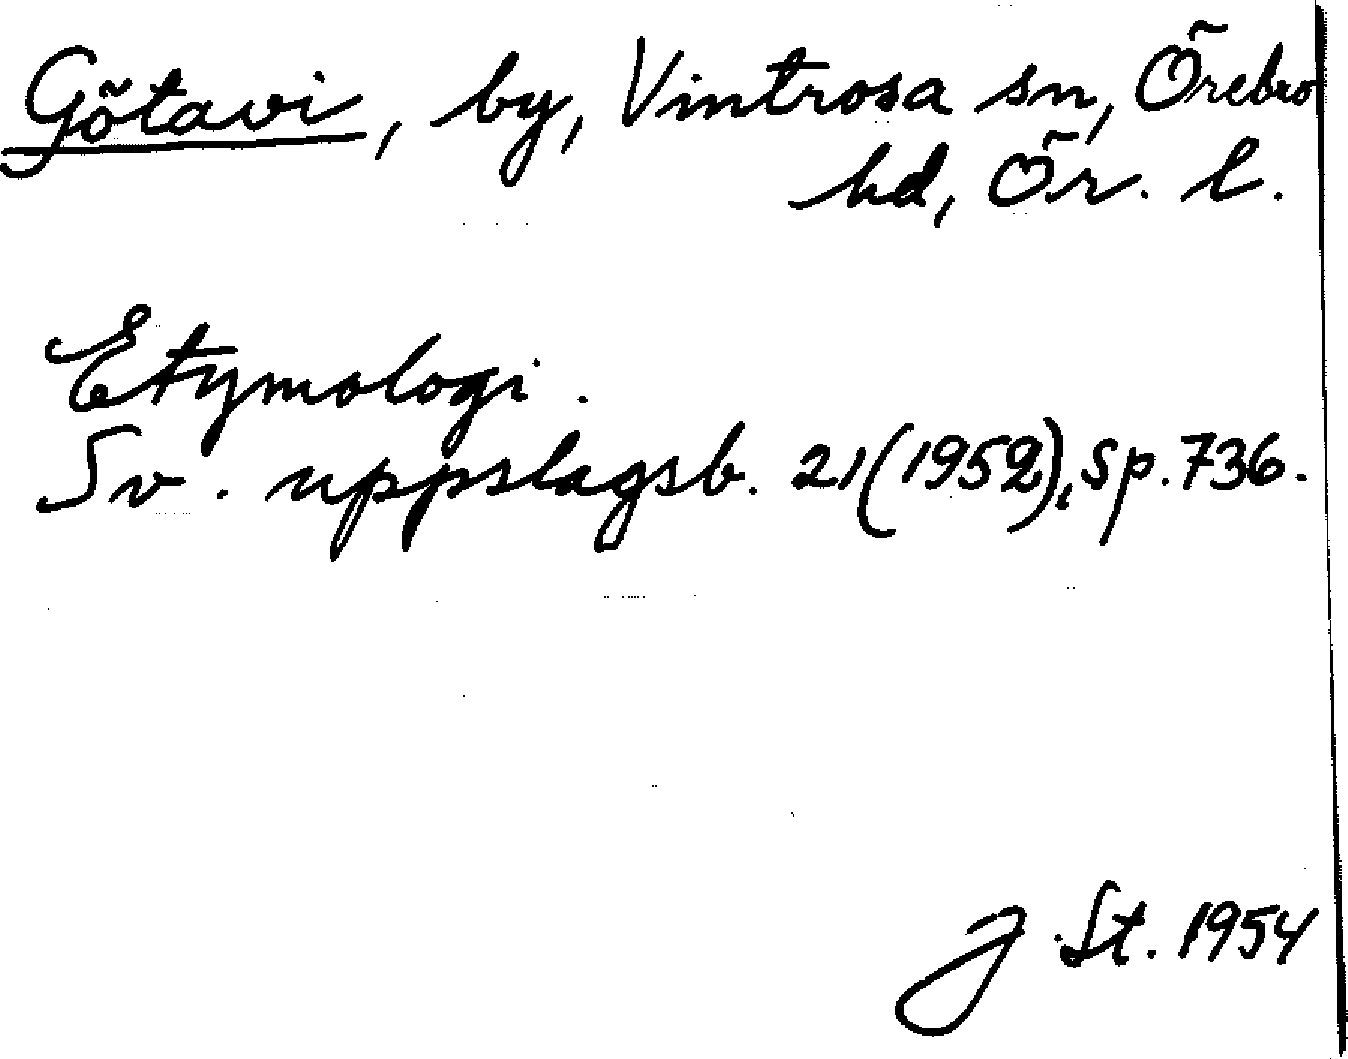 Götavi, by, Vintrosa sn, Örebro
hd, Ör. l.
Etymologi.
Sv. uppslagsb. 21(1952), sp. 736.
J. St. 1954